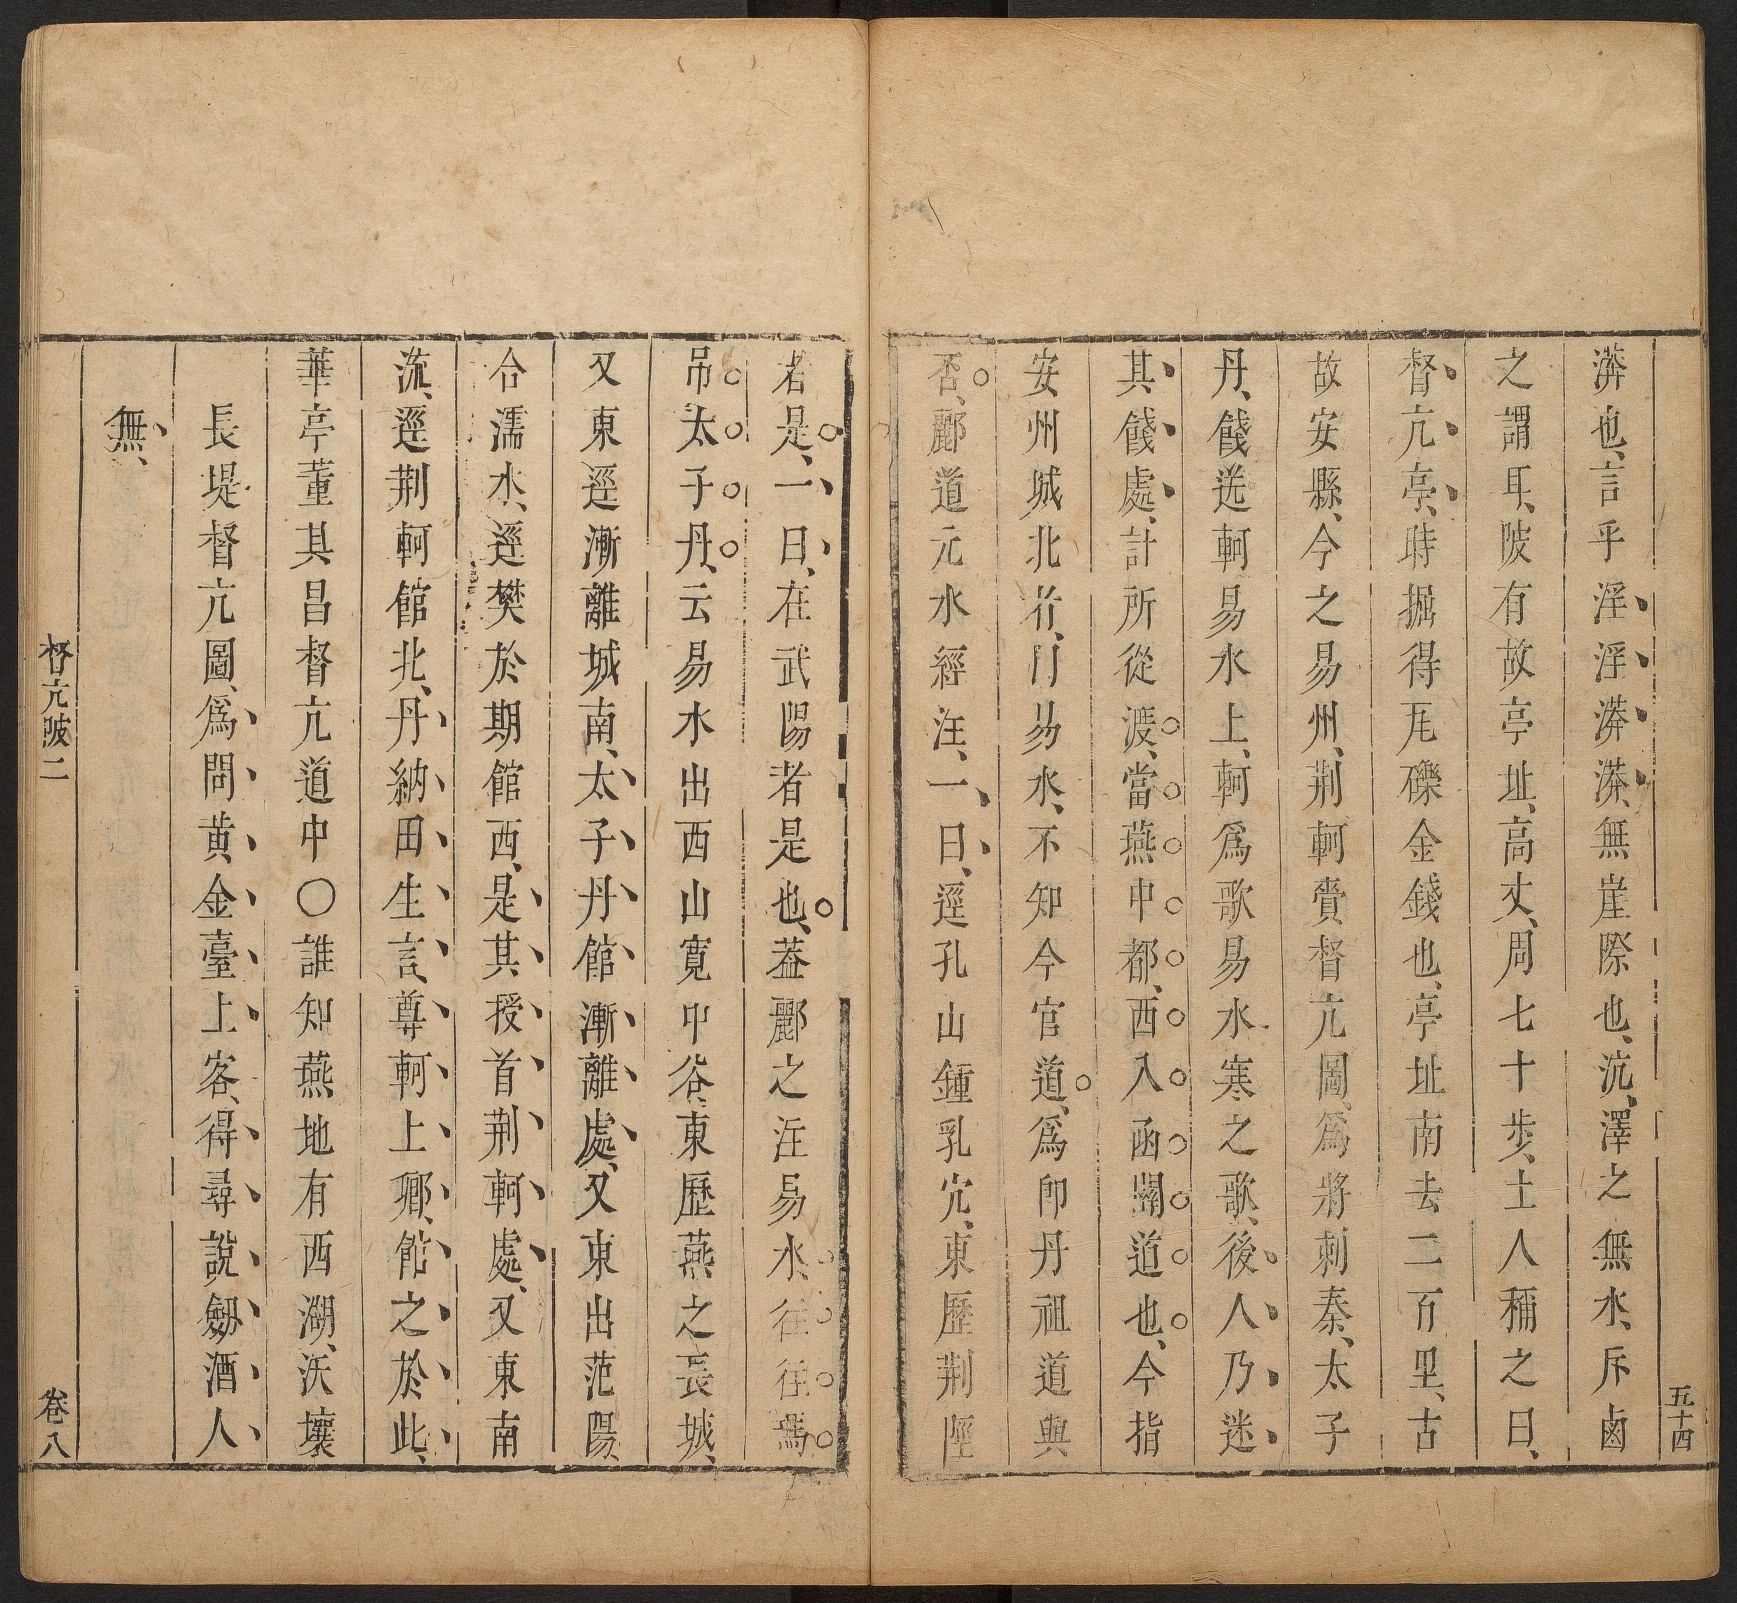 五十四
漭也、言乎淫淫漭漭、無崖際也、沆、澤之無水、斥鹵
之謂耳、陂有故亭址、高丈、周七十步、土人稱之曰、
督亢亭、時掘得瓦礫金錢也、亭址南去二百里、古
故安縣、今之易州、荆軻賫督亢圖、爲將刺秦、太子
丹、餞送軻易水上、軻爲歌易水寒之歌、後人乃迷
其餞處、計所從渡、當燕中都、西入函關道也、今指
安州城北者、乃易水、不知今官道、爲卽丹祖道與
否、酈道元水經注、一曰、逕孔山鍾乳穴、東歷荆陘
者是、一曰、在武陽者是也、葢酈之注易水、徃徃焉
吊太子丹、云易水出西山寬中谷、東歷燕之長城、
又東逕漸離城南、太子丹館漸離處、又東出范陽
合濡水、逕樊於期館西、是其授首荆軻處、又東南
流、逕荆軻館北、丹納田生言、尊軻上卿、館之於此、
華亭董其昌督亢道中〇誰知燕地有西湖、沃壤
長堤督亢圖、爲問黄金臺上客、得尋說劒酒人
無、
督亢陂二
卷八